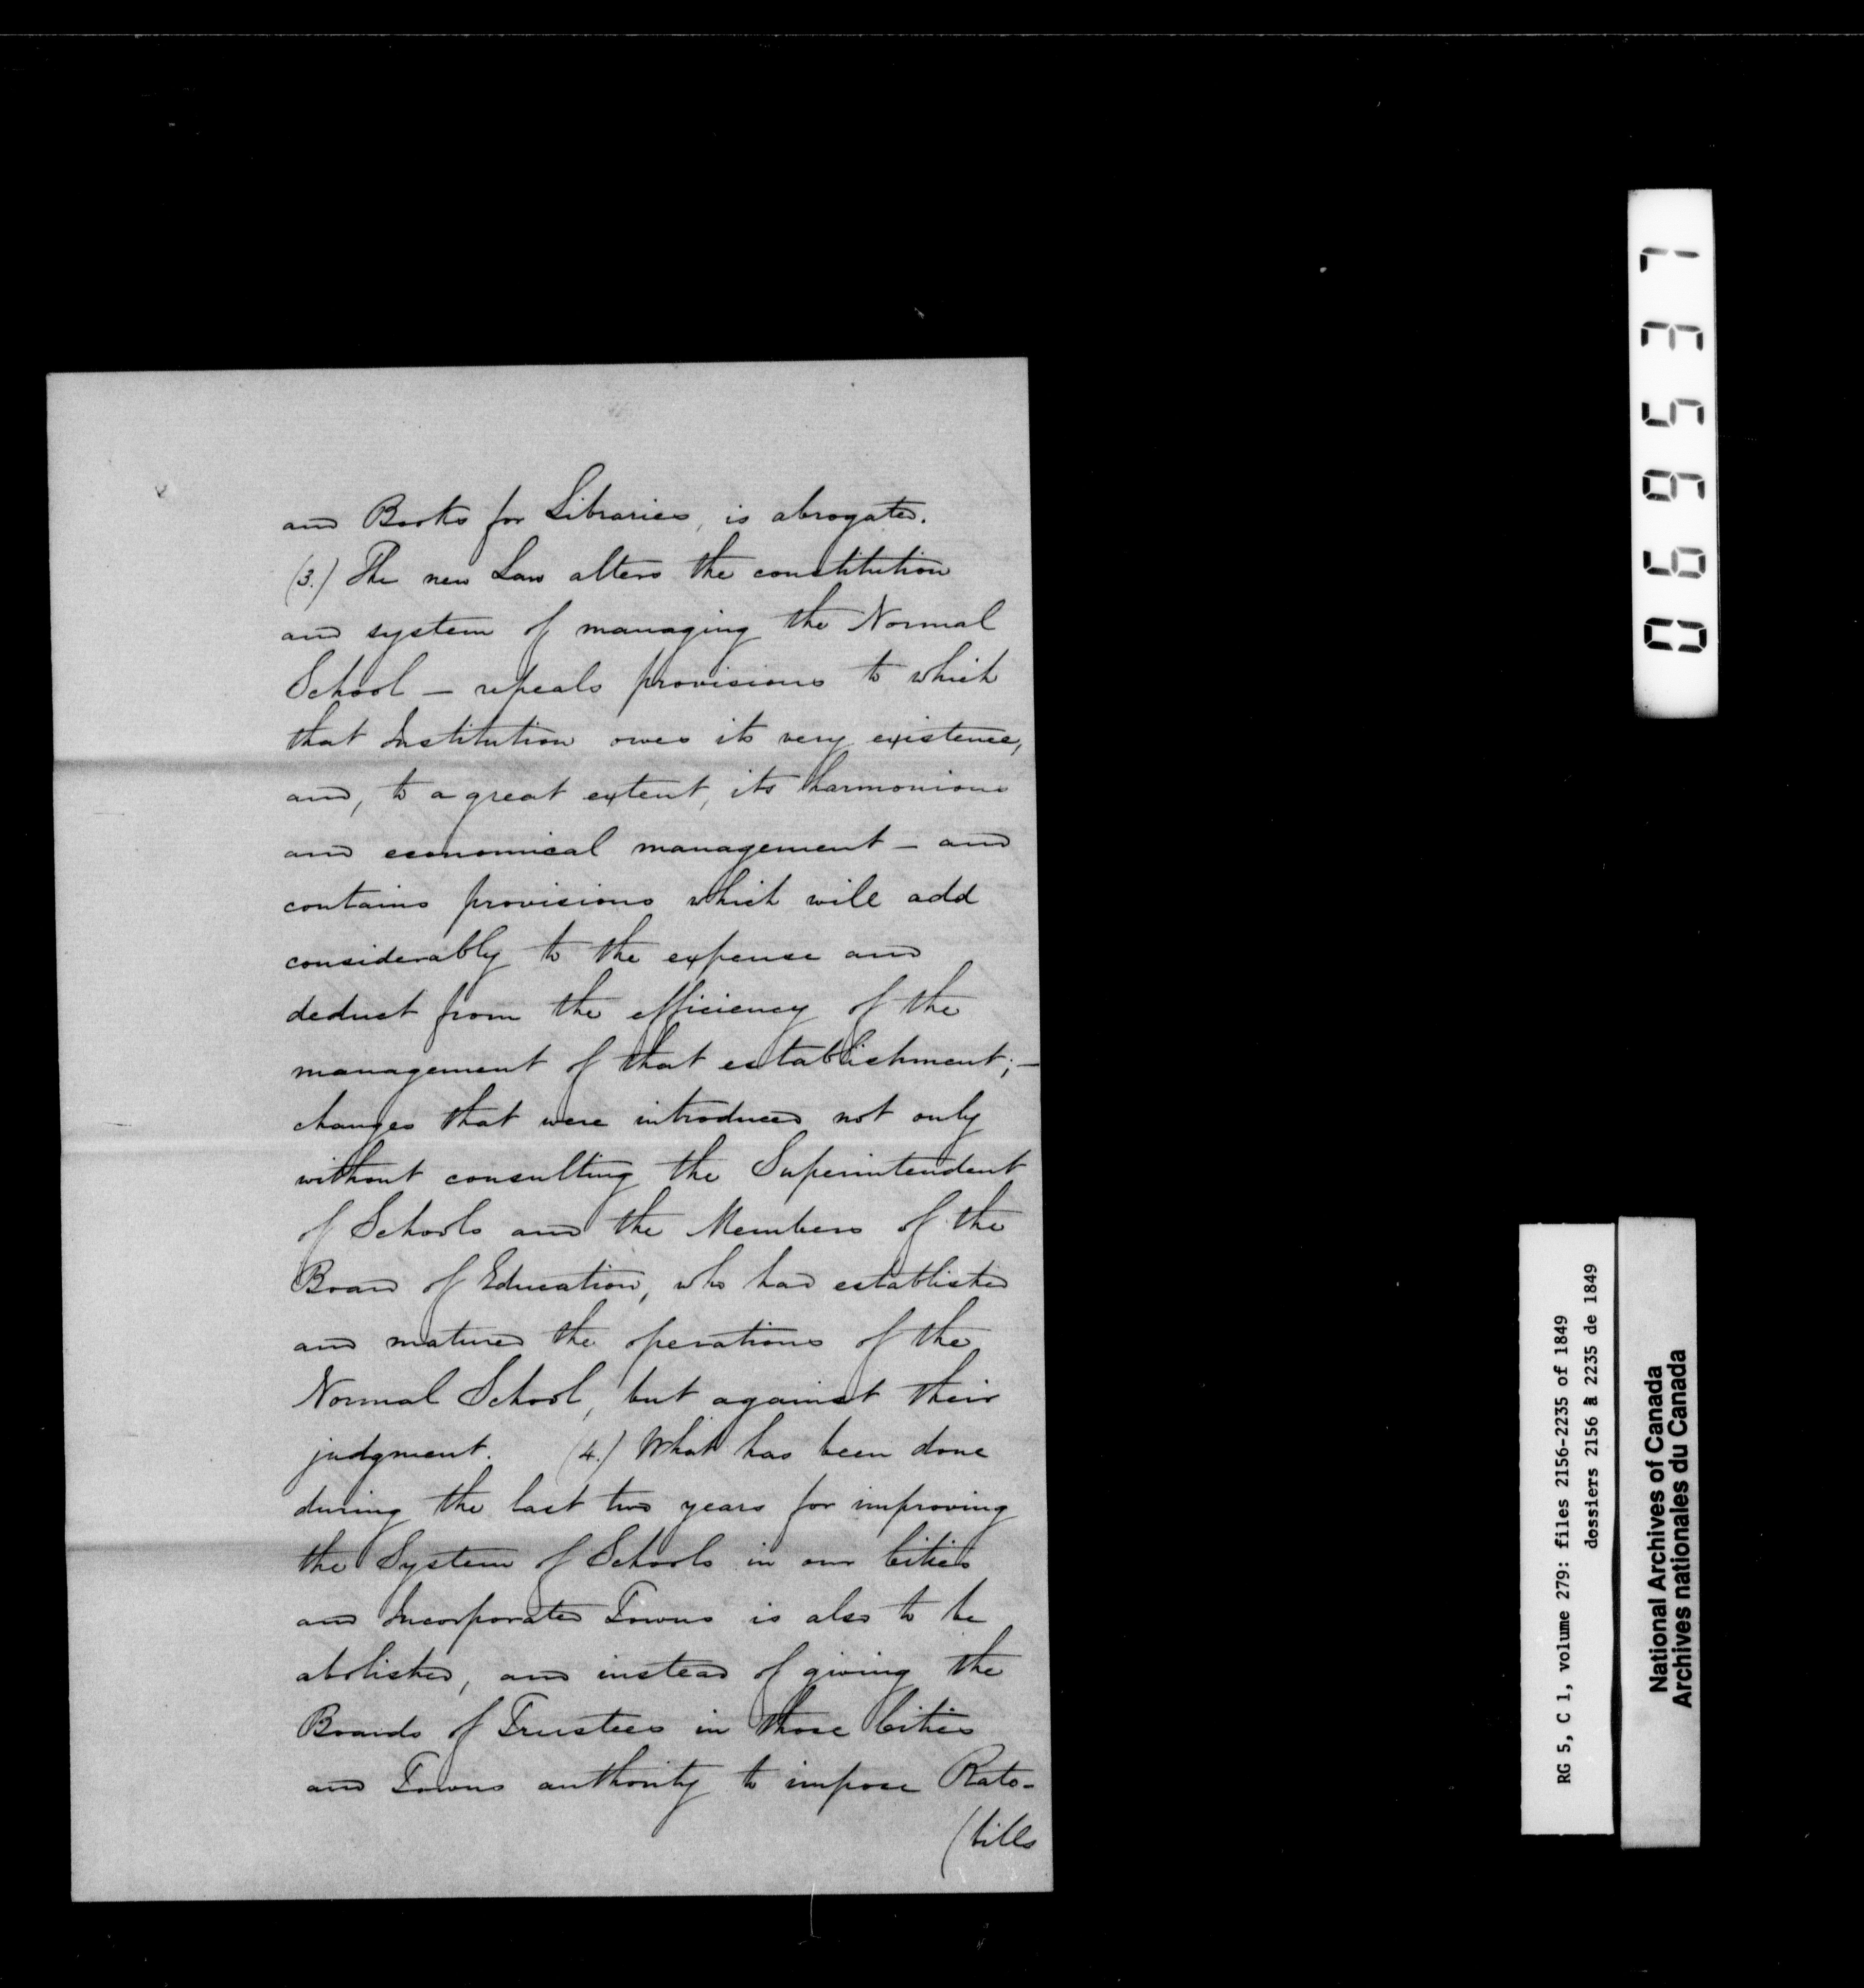 and Books for Libraries, is abrogated.
(3.) The new Law alters the constitution
and system of managing the Normal
School — repeals provisions to which
that Institution owes its very existence,
and, to a great extent, its harmonious
and economical management — and
contains provisions which will add
considerably to the expense and
deduct from the efficiency of the
management of that establishment; —
changes that were introduced not only
without consulting the Superintendent
of Schools and the Members of the
Board of Education, who had established
and matured the operations of the
Normal School, but against their
judgment. (4.) What has been done
during the last two years for improving
the System of Schools in our Cities
and Incorporated Towns is also to be
abolished, and instead of giving the
Boards of Trustees in those Cities
and Towns authority to impose Rate-
(bills
069537
RG 5, C 1, volume 279: files 2156-2235 of 1849
dossiers 2156 à 2235 de 1849
National Archives of Canada
Archives nationales du Canada